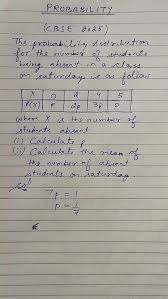 PROBABILITY
(CBSE 2025)
The probability distribution
for the number of students
being absent in a class
on saturday is as follow
X 0 2 4 5
P(X) P 2P 3P P
where X is the number of
students absent
(i) Calculate p
(ii) Calculate the mean of
the number of absent
students on saturday.
Sol
7p = 1
p = 1/7